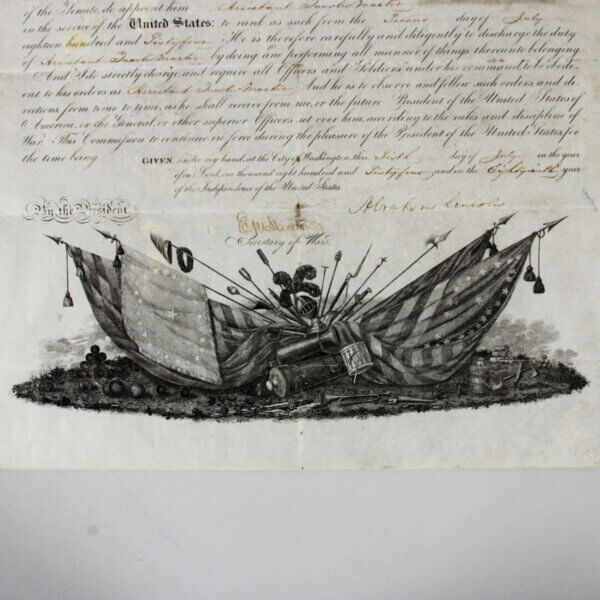 of the Senate, do appoint him Assistant Quarter Master
in the service of the United States: to rank as such from the Second day of July
eighteen hundred and Sixty four. He is therefore carefully and diligently to discharge the duty
of Assistant Quarter Master by doing and performing all manner of things thereunto belonging.
And I do strictly charge, and require all Officers and Soldiers under his command to be obedi-
ent to his orders as Assistant Quarter Master. And he is to observe and follow such orders, and di-
rections from time to time, as he shall receive from me, or the future President of the United States of
America, or the General, or other superior Officers set over him, according to the rules and discipline of
War. This Commission to continue in force during the pleasure of the President of the United States for
the time being.
GIVEN under my hand, at the City of Washington, this day of July in the year
of our Lord, one thousand eight hundred and Sixty four and in the Eighty ninth year
of the Independence of the United States.
By the President,
Abraham Lincoln
Edwin M Stanton
Secretary of War.